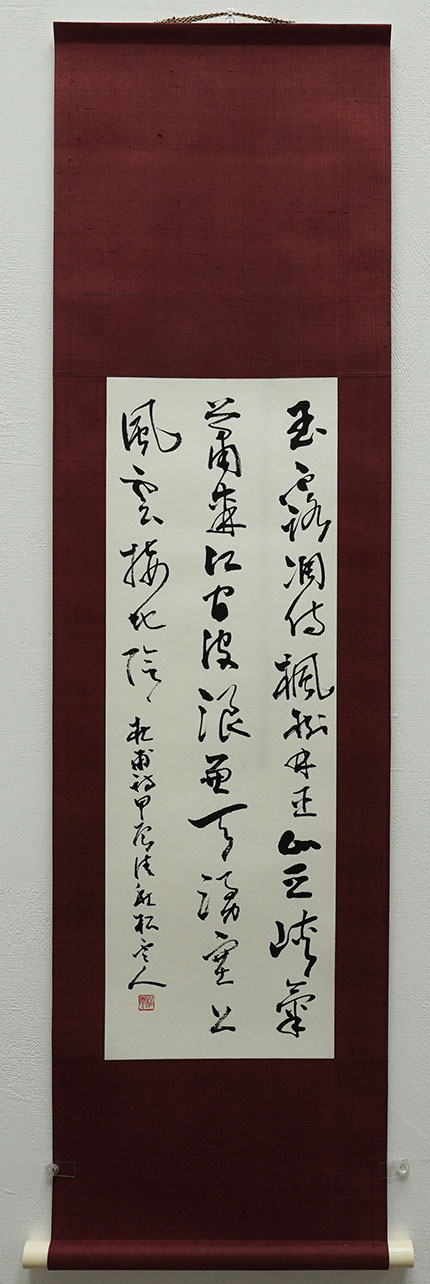 玉露凋傷楓樹林巫山巫峽氣
蕭森江間波浪兼天湧塞上
風雲接地陰 杜甫詩甲辰